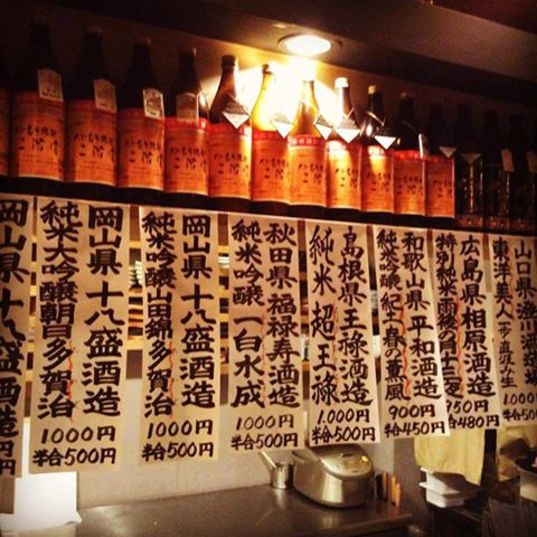 山口県 澄川酒造場
東洋美人 一歩 直汲み生
1,000円
半合500円
広島県 相原酒造
特別純米 雨後の月 十三夜
750円
半合480円
和歌山県 平和酒造
純米吟醸 紀土 春の薫風
900円
半合450円
島根県 王祿酒造
純米 超王祿
1,000円
半合500円
秋田県 福禄寿酒造
純米吟醸 一白水成
1000円
半合500円
岡山県 十八盛酒造
純米吟醸 山田錦 多賀治
1000円
半合500円
岡山県 十八盛酒造
純米大吟醸 朝日 多賀治
1000円
半合500円
岡山県 十八盛酒造
二階堂